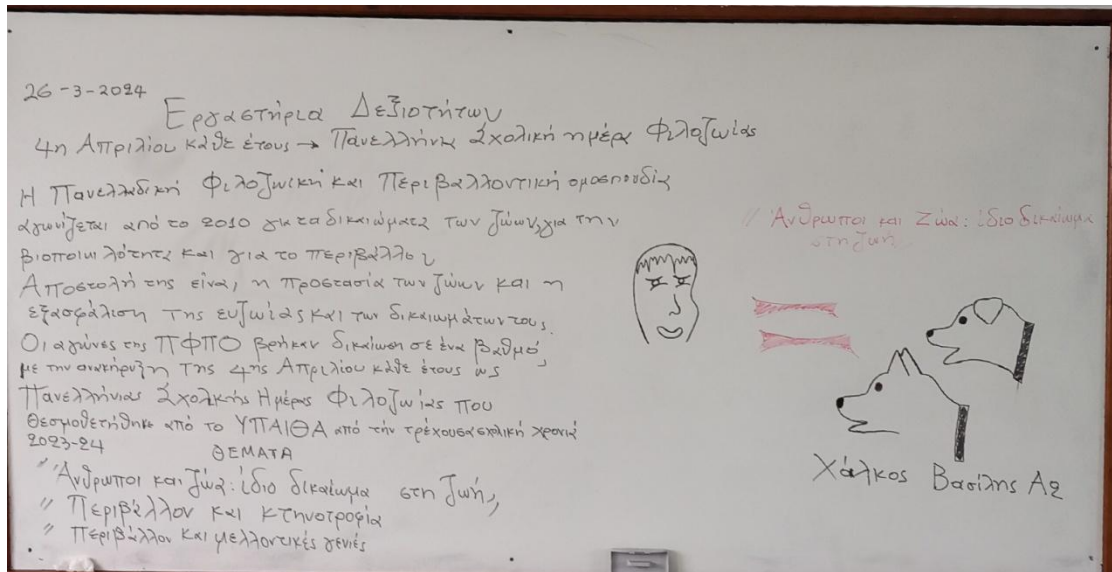 26-3-2024
Εργαστήρια Δεξιοτήτων
4η Απριλίου κάθε έτους → Πανελλήνια Σχολική ημέρα Φιλοζωίας
Η Πανελλαδική Φιλοζωική και Περιβαλλοντική ομοσπονδία
αγωνίζεται από το 2010 για τα δικαιώματα των ζώων, για την
βιοποικιλότητα και για το περιβάλλον
Αποστολή της είναι, η προστασία των ζώων και η
εξασφάλιση της ευζωίας και των δικαιωμάτων τους.
Οι αγώνες της ΠΦΠΟ βρήκαν δικαίωση σε ένα βαθμό,
με την ανακήρυξη της 4ης Απριλίου κάθε έτους ως
Πανελλήνιας Σχολικής Ημέρας Φιλοζωίας που
Θεσμοθετήθηκε από το ΥΠΑΙΘΑ από την τρέχουσα σχολική χρονιά
2023-24
ΘΕΜΑΤΑ
" Άνθρωποι και ζώα: ίδιο δικαίωμα στη ζωή,
" Περιβάλλον και κτηνοτροφία
" Περιβάλλον και μελλοντικές γενιές
" Άνθρωποι και Ζώα: ίδιο δικαίωμα
στη ζωή
Χάλκος Βασίλης Α2